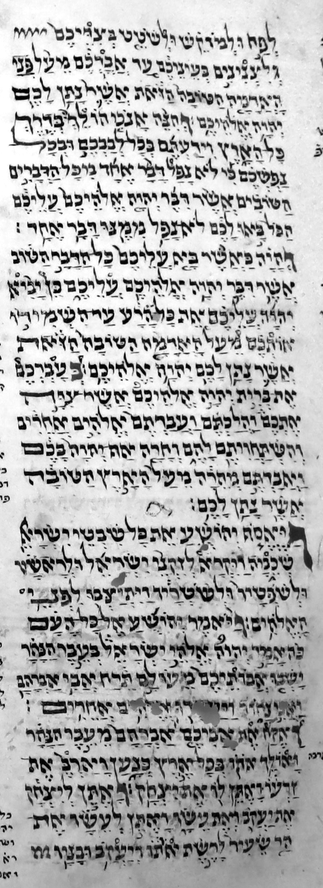 לפח ולמוקש ולשטט בצדיכם
ולצננים בעיניכם עד אבדכם מעל פני
האדמה הטובה הזאת אשר נתן לכם
יהוה אלהיכם והנה אנכי הולך בדרך
כל הארץ וידעתם בכל לבבכם ובכל
נפשכם כי לא נפל דבר אחד מכל הדברים
הטובים אשר דבר יהוה אלהיכם עליכם
הכל באו לכם לא נפל ממנו דבר אחד :
והיה כאשר בא עליכם כל הדבר הטוב
אשר דבר יהוה אלהיכם עליכם כן יביא
יהוה עליכם את כל הרע עד השמידו
אותכם מעל האדמה הטובה הזאת
אשר נתן לכם יהוה אלהיכם : בעברכם
את ברית יהוה אלהיכם אשר צוה
אתכם והלכתם ועבדתם אלהים אחרים
והשתחויתם להם וחרה אף יהוה בכם
ואבדתם מהרה מעל הארץ הטובה
אשר נתן לכם :
ויאסף יהושע את כל שבטי ישראל
שכמה ויקרא לזקני ישראל ולראשיו
ולשפטיו ולשטריו ויתיצבו לפני
האלהים ויאמר יהושע אל כל העם
כה אמר יהוה אלהי ישראל בעבר הנהר
ישבו אבותיכם מעולם תרח אבי אברהם
ואבי נחור ויעבדו אלהים אחרים :
ואקח את אביכם אברהם מעבר הנהר
ואולך אתו בכל ארץ כנען וארבה את
זרעו ואתן לו את יצחק : ואתן ליצחק
את יעקב ואת עשו ואתן לעשו את
הר שעיר לרשת אתו ויעקב ובניו